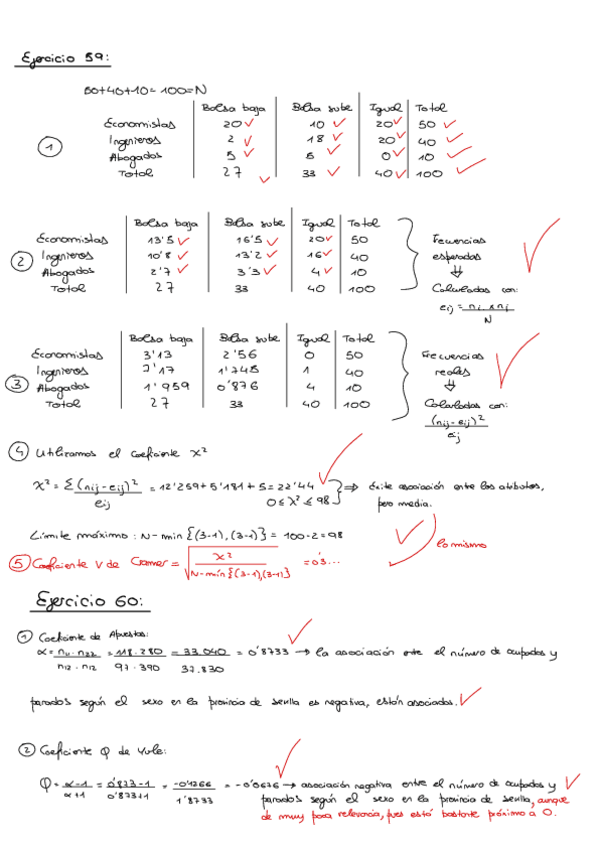 Ejercicio 59:
50+40+10=100=N
Bolsa baja Bolsa sube Igual Total
Economistas 20 10 20 50
① Ingenieros 2 18 20 40
Abogados 5 5 0 10
Total 27 33 40 100
Bolsa baja Bolsa sube Igual Total
Economistas 13'5 16'5 20 50 Frecuencias
② Ingenieros 10'8 13'2 16 40 esperadas
Abogados 2'7 3'3 4 10
Total 27 33 40 100 Calculadas con:
eij = ni. x nj / N
Bolsa baja Bolsa sube Igual Total
Economistas 3'13 2'56 0 50 Frecuencias
Ingenieros 7'17 1'745 1 40 reales
③ Abogados 1'959 0'876 4 10
Total 27 33 40 100 Calculadas con:
(nij-eij)² / eij
④ Utilizamos el coeficiente X²
X² = Σ (nij-eij)² / eij = 12'259+5'181+5=22'44 ⇒ Existe asociación entre los atributos,
0 ≤ X² ≤ 98 pero media.
Límite máximo: N-min {(3-1),(3-1)} = 100-2=98
lo mismo
⑤ Coeficiente V de Cramer = √ X² / N-min {(3-1),(3-1)} = 0'3...
Ejercicio 60:
① Coeficiente de Apuestas:
α = n11.n22 / n12.n12 = 118.280 / 97.390 = 33.040 / 37.830 = 0'8733 → la asociación ente el número de ocupados y
parados según el sexo en la provincia de Sevilla es negativa, están asociados.
② Coeficiente Q de Yule:
Q = α-1 / α+1 = 0'873-1 / 0'873+1 = -0'1266 / 1'8733 = -0'0676 → asociación negativa entre el número de ocupados y
parados según el sexo en la provincia de Sevilla, aunque
de muy poca relevancia, pues está bastante próximo a 0.